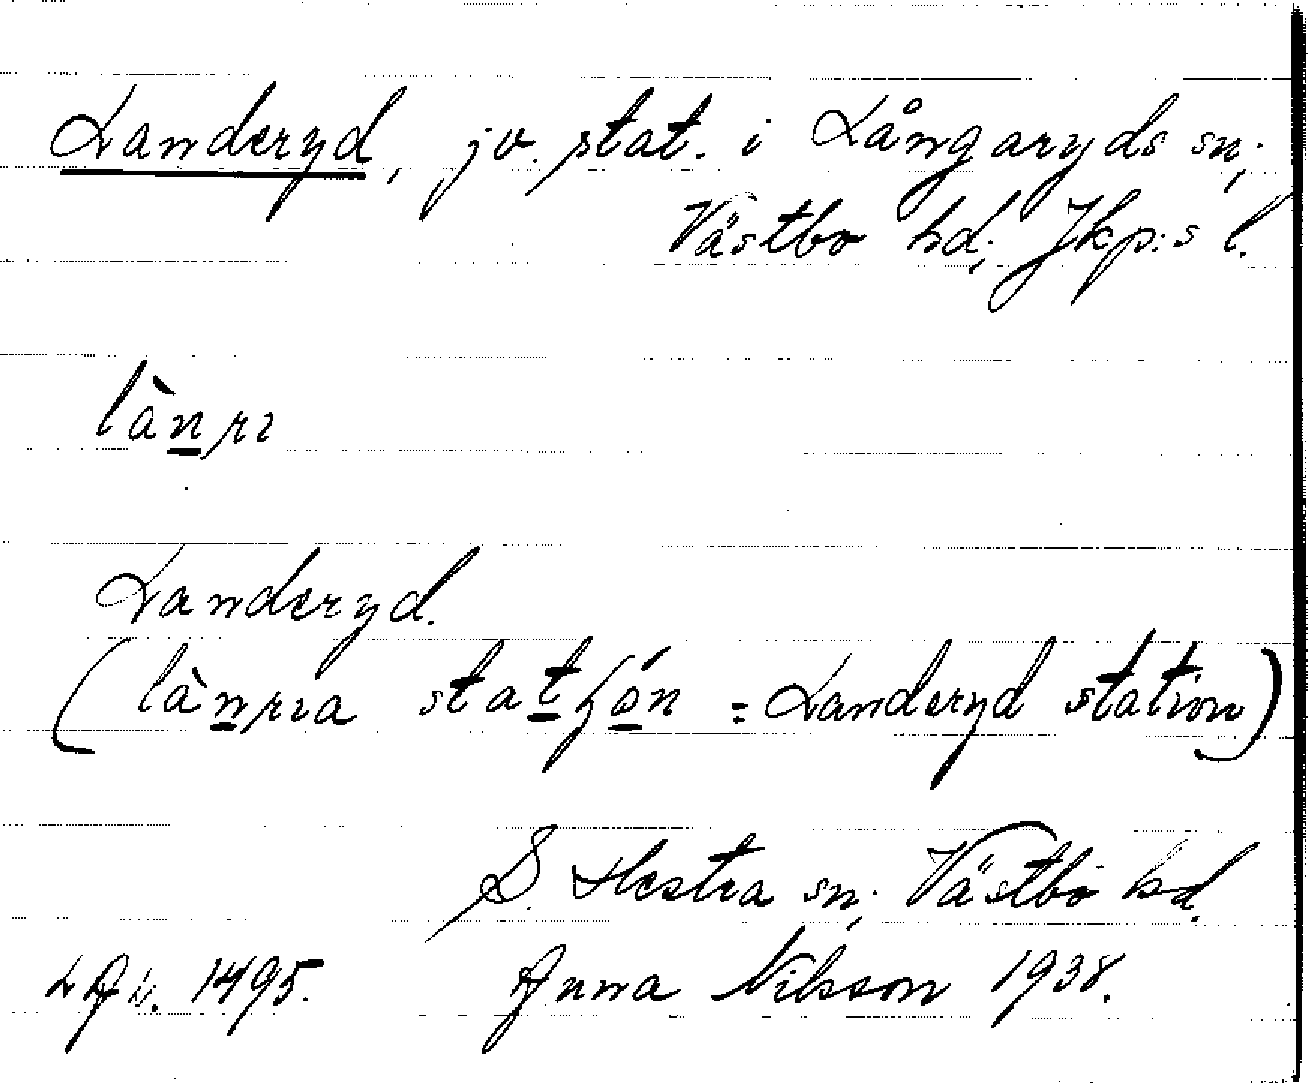 Landeryd, jv. stat. i Långaryds sn;
Västbo hd; Jkp:s l.
lànrı
Landeryd.
(lànrıa statʃón = Landeryd station)
S. Hestra sn; Västbo hd.
LAu. 1495. Anna Nilsson 1938.